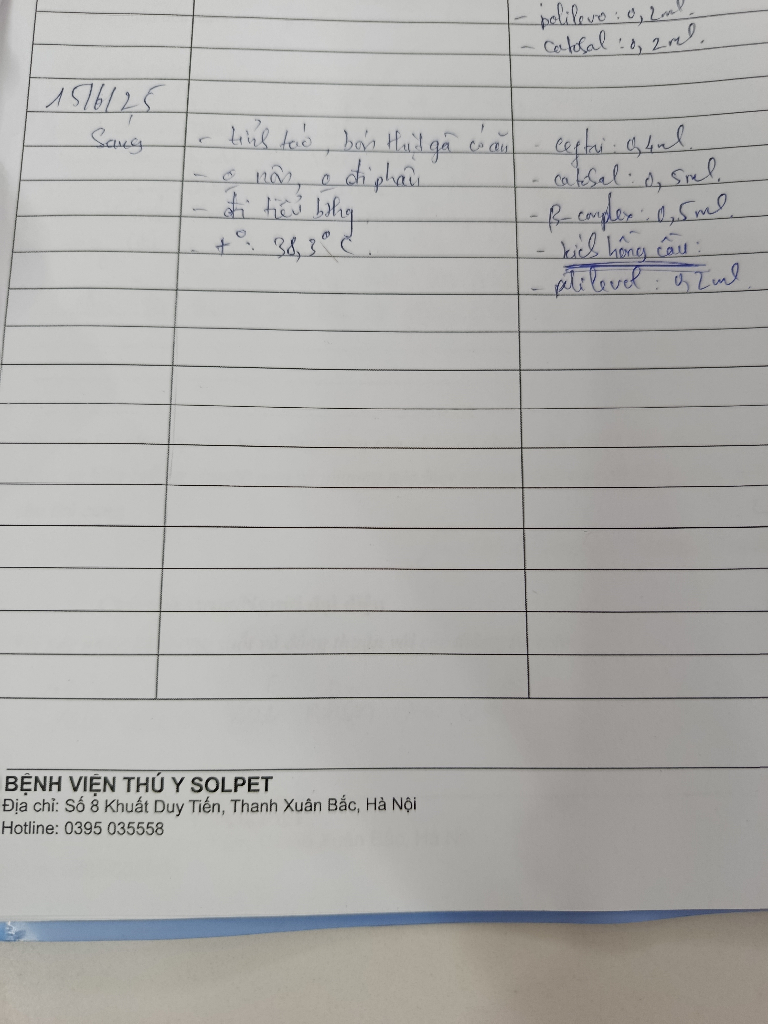 - polilevo : 0,2ml.
- catosal : 0,2ml.
15/6/25
Sáng
- tỉnh táo, bón thịt gà có ăn
- ceftri : 0,4ml.
- o nôn, o đi phân
- catosal : 0,5ml.
- đi tiểu bthg
- B-complex : 0,5ml.
- t°: 38,3°C.
- kích hồng cầu :
- polilevel : 0,2ml.
BỆNH VIỆN THÚ Y SOLPET
Địa chỉ: Số 8 Khuất Duy Tiến, Thanh Xuân Bắc, Hà Nội
Hotline: 0395 035558